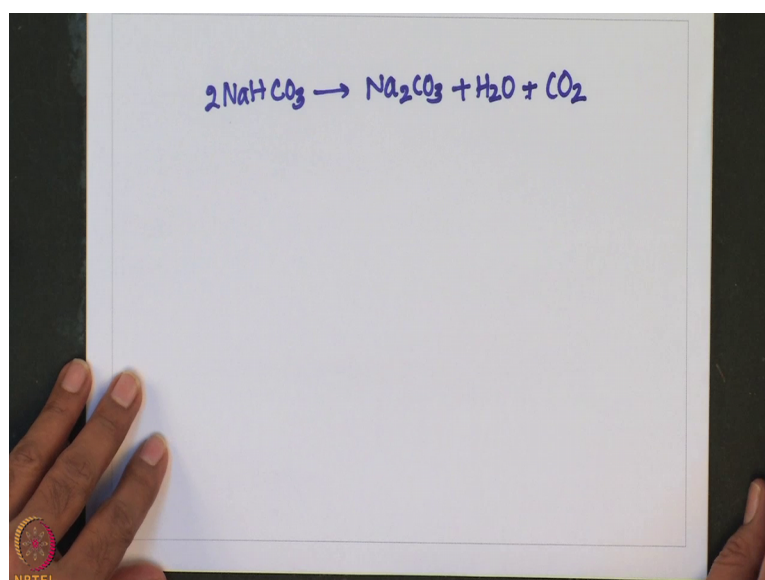 2NaHCO₃ → Na₂CO₃ + H₂O + CO₂
NPTEL